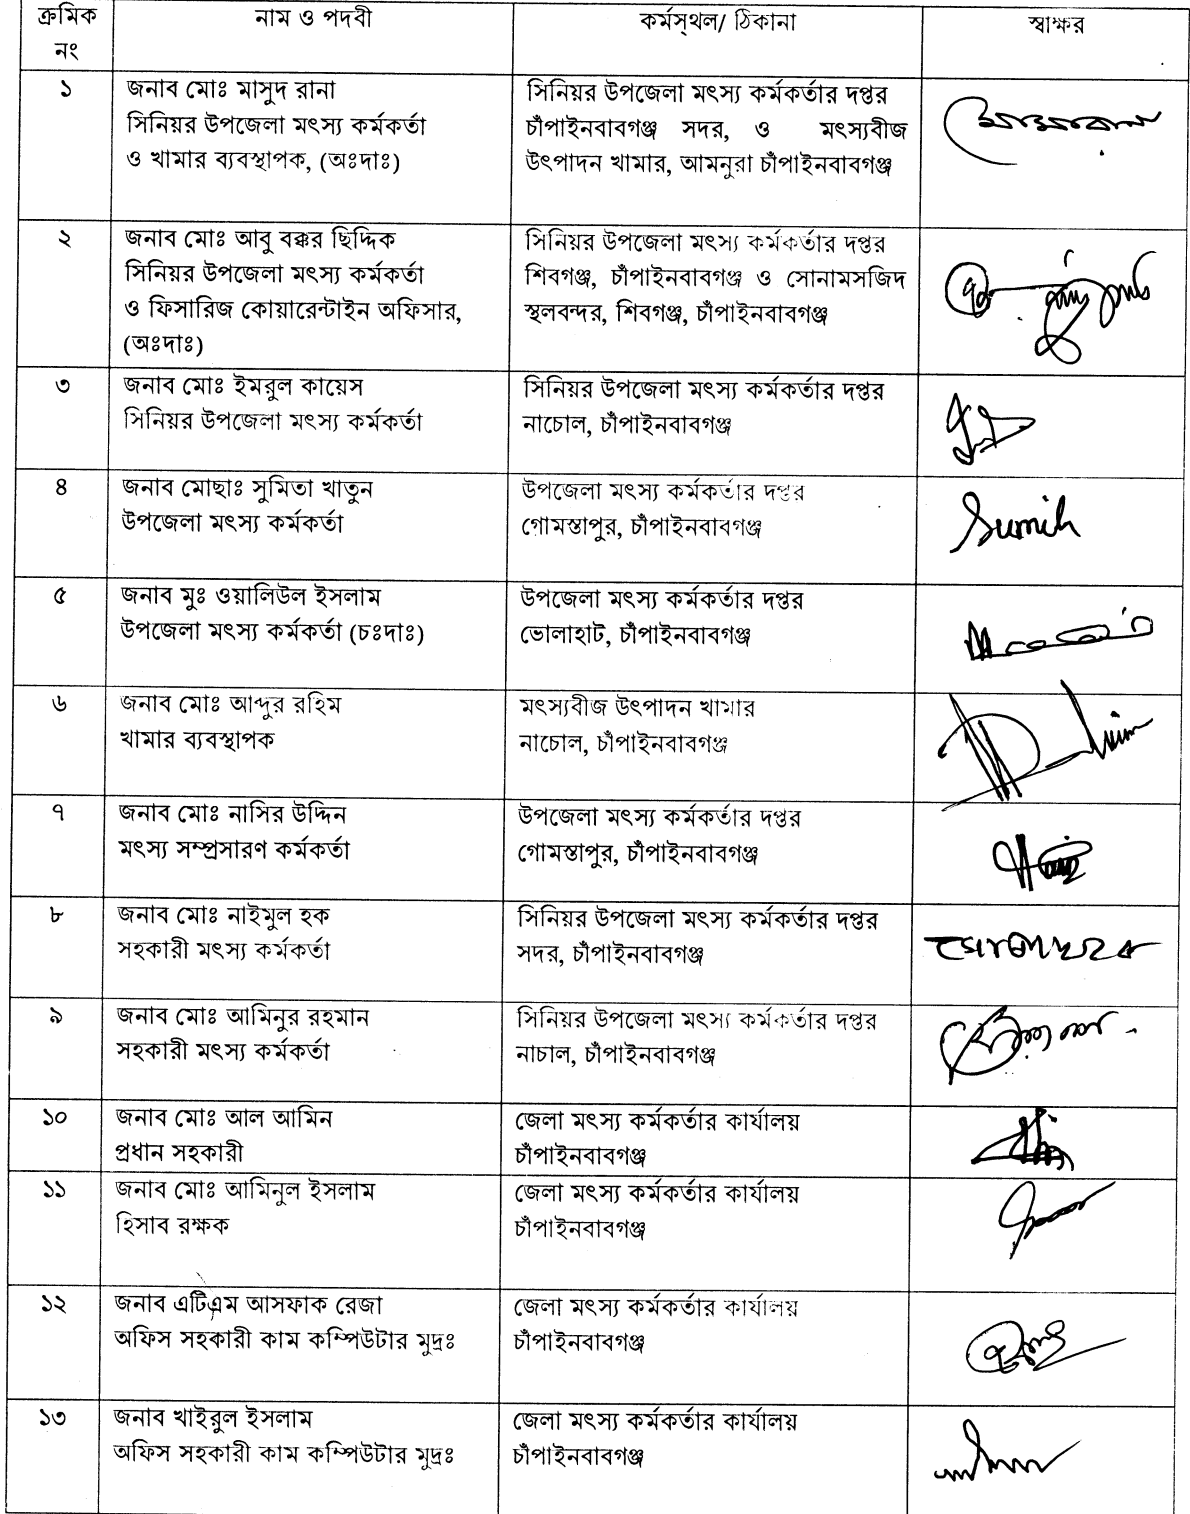 ক্রমিক নং	নাম ও পদবী	কর্মস্থল/ ঠিকানা	স্বাক্ষর
১	জনাব মোঃ মাসুদ রানা
সিনিয়র উপজেলা মৎস্য কর্মকর্তা
ও খামার ব্যবস্থাপক, (অঃদাঃ)
সিনিয়র উপজেলা মৎস্য কর্মকর্তার দপ্তর
চাঁপাইনবাবগঞ্জ সদর, ও মৎস্যবীজ
উৎপাদন খামার, আমনুরা চাঁপাইনবাবগঞ্জ
২	জনাব মোঃ আবু বক্কর ছিদ্দিক
সিনিয়র উপজেলা মৎস্য কর্মকর্তা
ও ফিসারিজ কোয়ারেন্টাইন অফিসার,
(অঃদাঃ)
সিনিয়র উপজেলা মৎস্য কর্মকর্তার দপ্তর
শিবগঞ্জ, চাঁপাইনবাবগঞ্জ ও সোনামসজিদ
স্থলবন্দর, শিবগঞ্জ, চাঁপাইনবাবগঞ্জ
৩	জনাব মোঃ ইমরুল কায়েস
সিনিয়র উপজেলা মৎস্য কর্মকর্তা
সিনিয়র উপজেলা মৎস্য কর্মকর্তার দপ্তর
নাচোল, চাঁপাইনবাবগঞ্জ
৪	জনাব মোছাঃ সুমিতা খাতুন
উপজেলা মৎস্য কর্মকর্তা
উপজেলা মৎস্য কর্মকর্তার দপ্তর
গোমস্তাপুর, চাঁপাইনবাবগঞ্জ
৫	জনাব মুঃ ওয়ালিউল ইসলাম
উপজেলা মৎস্য কর্মকর্তা (চঃদাঃ)
উপজেলা মৎস্য কর্মকর্তার দপ্তর
ভোলাহাট, চাঁপাইনবাবগঞ্জ
৬	জনাব মোঃ আব্দুর রহিম
খামার ব্যবস্থাপক
মৎস্যবীজ উৎপাদন খামার
নাচোল, চাঁপাইনবাবগঞ্জ
৭	জনাব মোঃ নাসির উদ্দিন
মৎস্য সম্প্রসারণ কর্মকর্তা
উপজেলা মৎস্য কর্মকর্তার দপ্তর
গোমস্তাপুর, চাঁপাইনবাবগঞ্জ
৮	জনাব মোঃ নাইমুল হক
সহকারী মৎস্য কর্মকর্তা
সিনিয়র উপজেলা মৎস্য কর্মকর্তার দপ্তর
সদর, চাঁপাইনবাবগঞ্জ
৯	জনাব মোঃ আমিনুর রহমান
সহকারী মৎস্য কর্মকর্তা
সিনিয়র উপজেলা মৎস্য কর্মকর্তার দপ্তর
নাচাল, চাঁপাইনবাবগঞ্জ
১০	জনাব মোঃ আল আমিন
প্রধান সহকারী
জেলা মৎস্য কর্মকর্তার কার্যালয়
চাঁপাইনবাবগঞ্জ
১১	জনাব মোঃ আমিনুল ইসলাম
হিসাব রক্ষক
জেলা মৎস্য কর্মকর্তার কার্যালয়
চাঁপাইনবাবগঞ্জ
১২	জনাব এটিএম আসফাক রেজা
অফিস সহকারী কাম কম্পিউটার মুদ্রঃ
জেলা মৎস্য কর্মকর্তার কার্যালয়
চাঁপাইনবাবগঞ্জ
১৩	জনাব খাইরুল ইসলাম
অফিস সহকারী কাম কম্পিউটার মুদ্রঃ
জেলা মৎস্য কর্মকর্তার কার্যালয়
চাঁপাইনবাবগঞ্জ